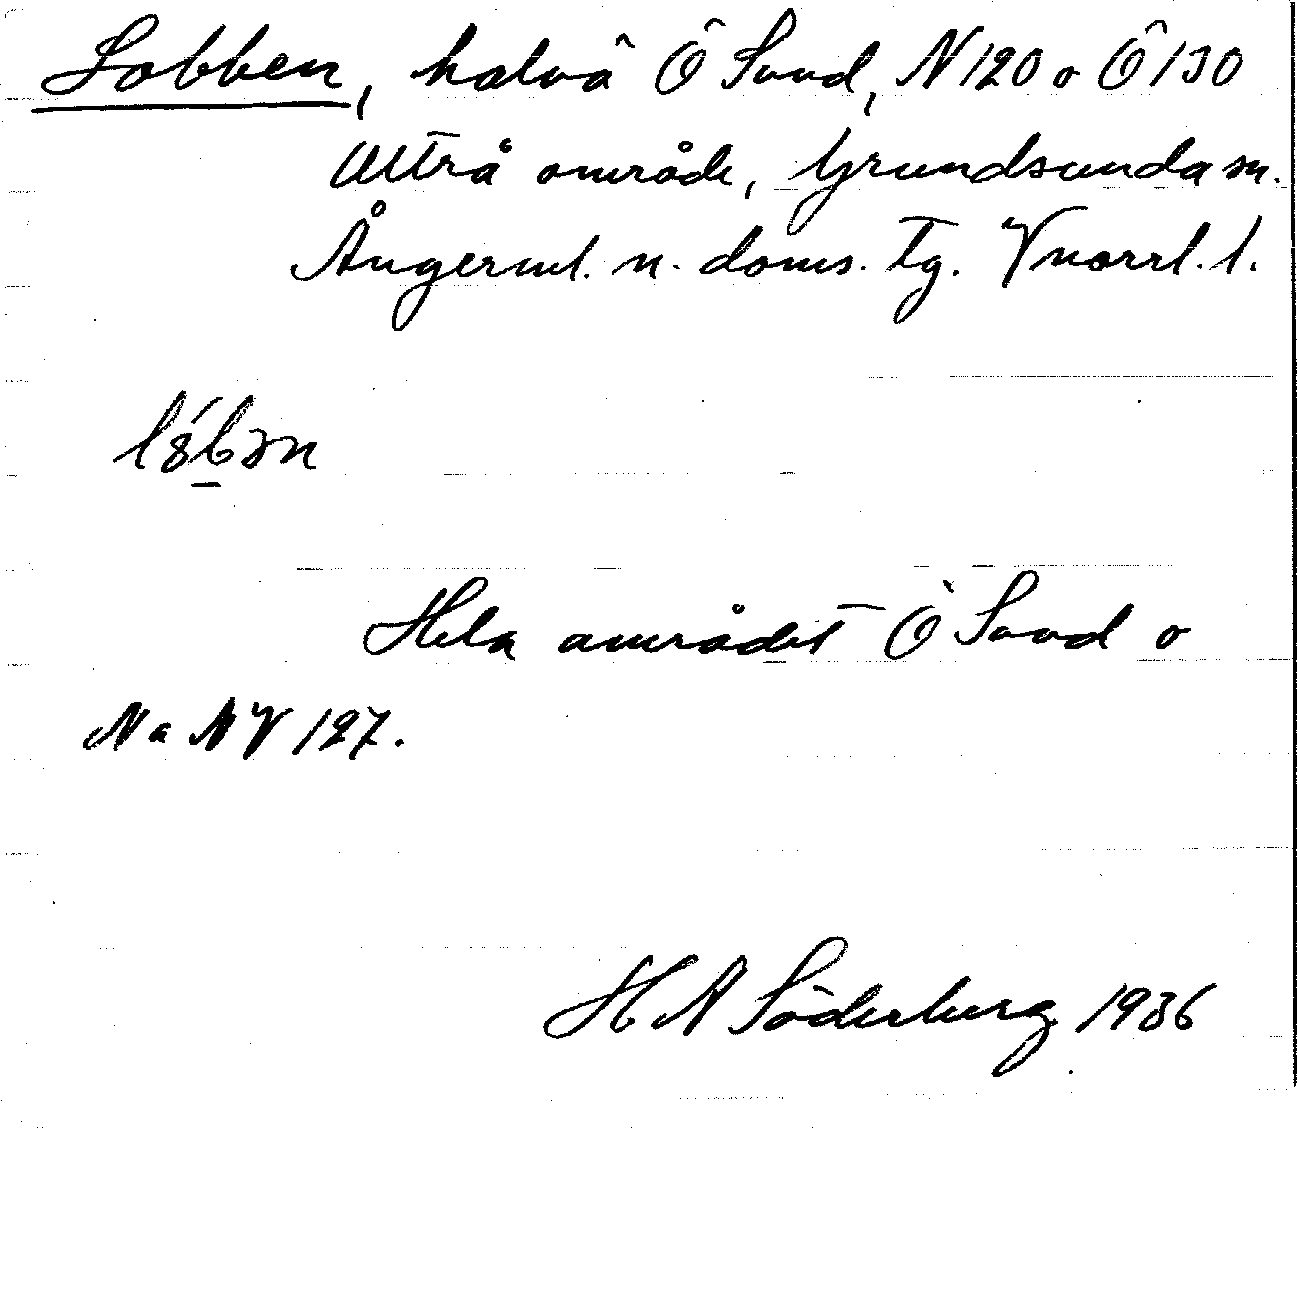 Lobben, halvö Ö Svvd, N 120 o Ö 130
Utträ område, Grundsunda sn.
Ångerml. n. doms. tg. Vnorrl. l.
lóbən
Hela området Ö Svvd o
N a NV 127.
H A Söderberg 1936